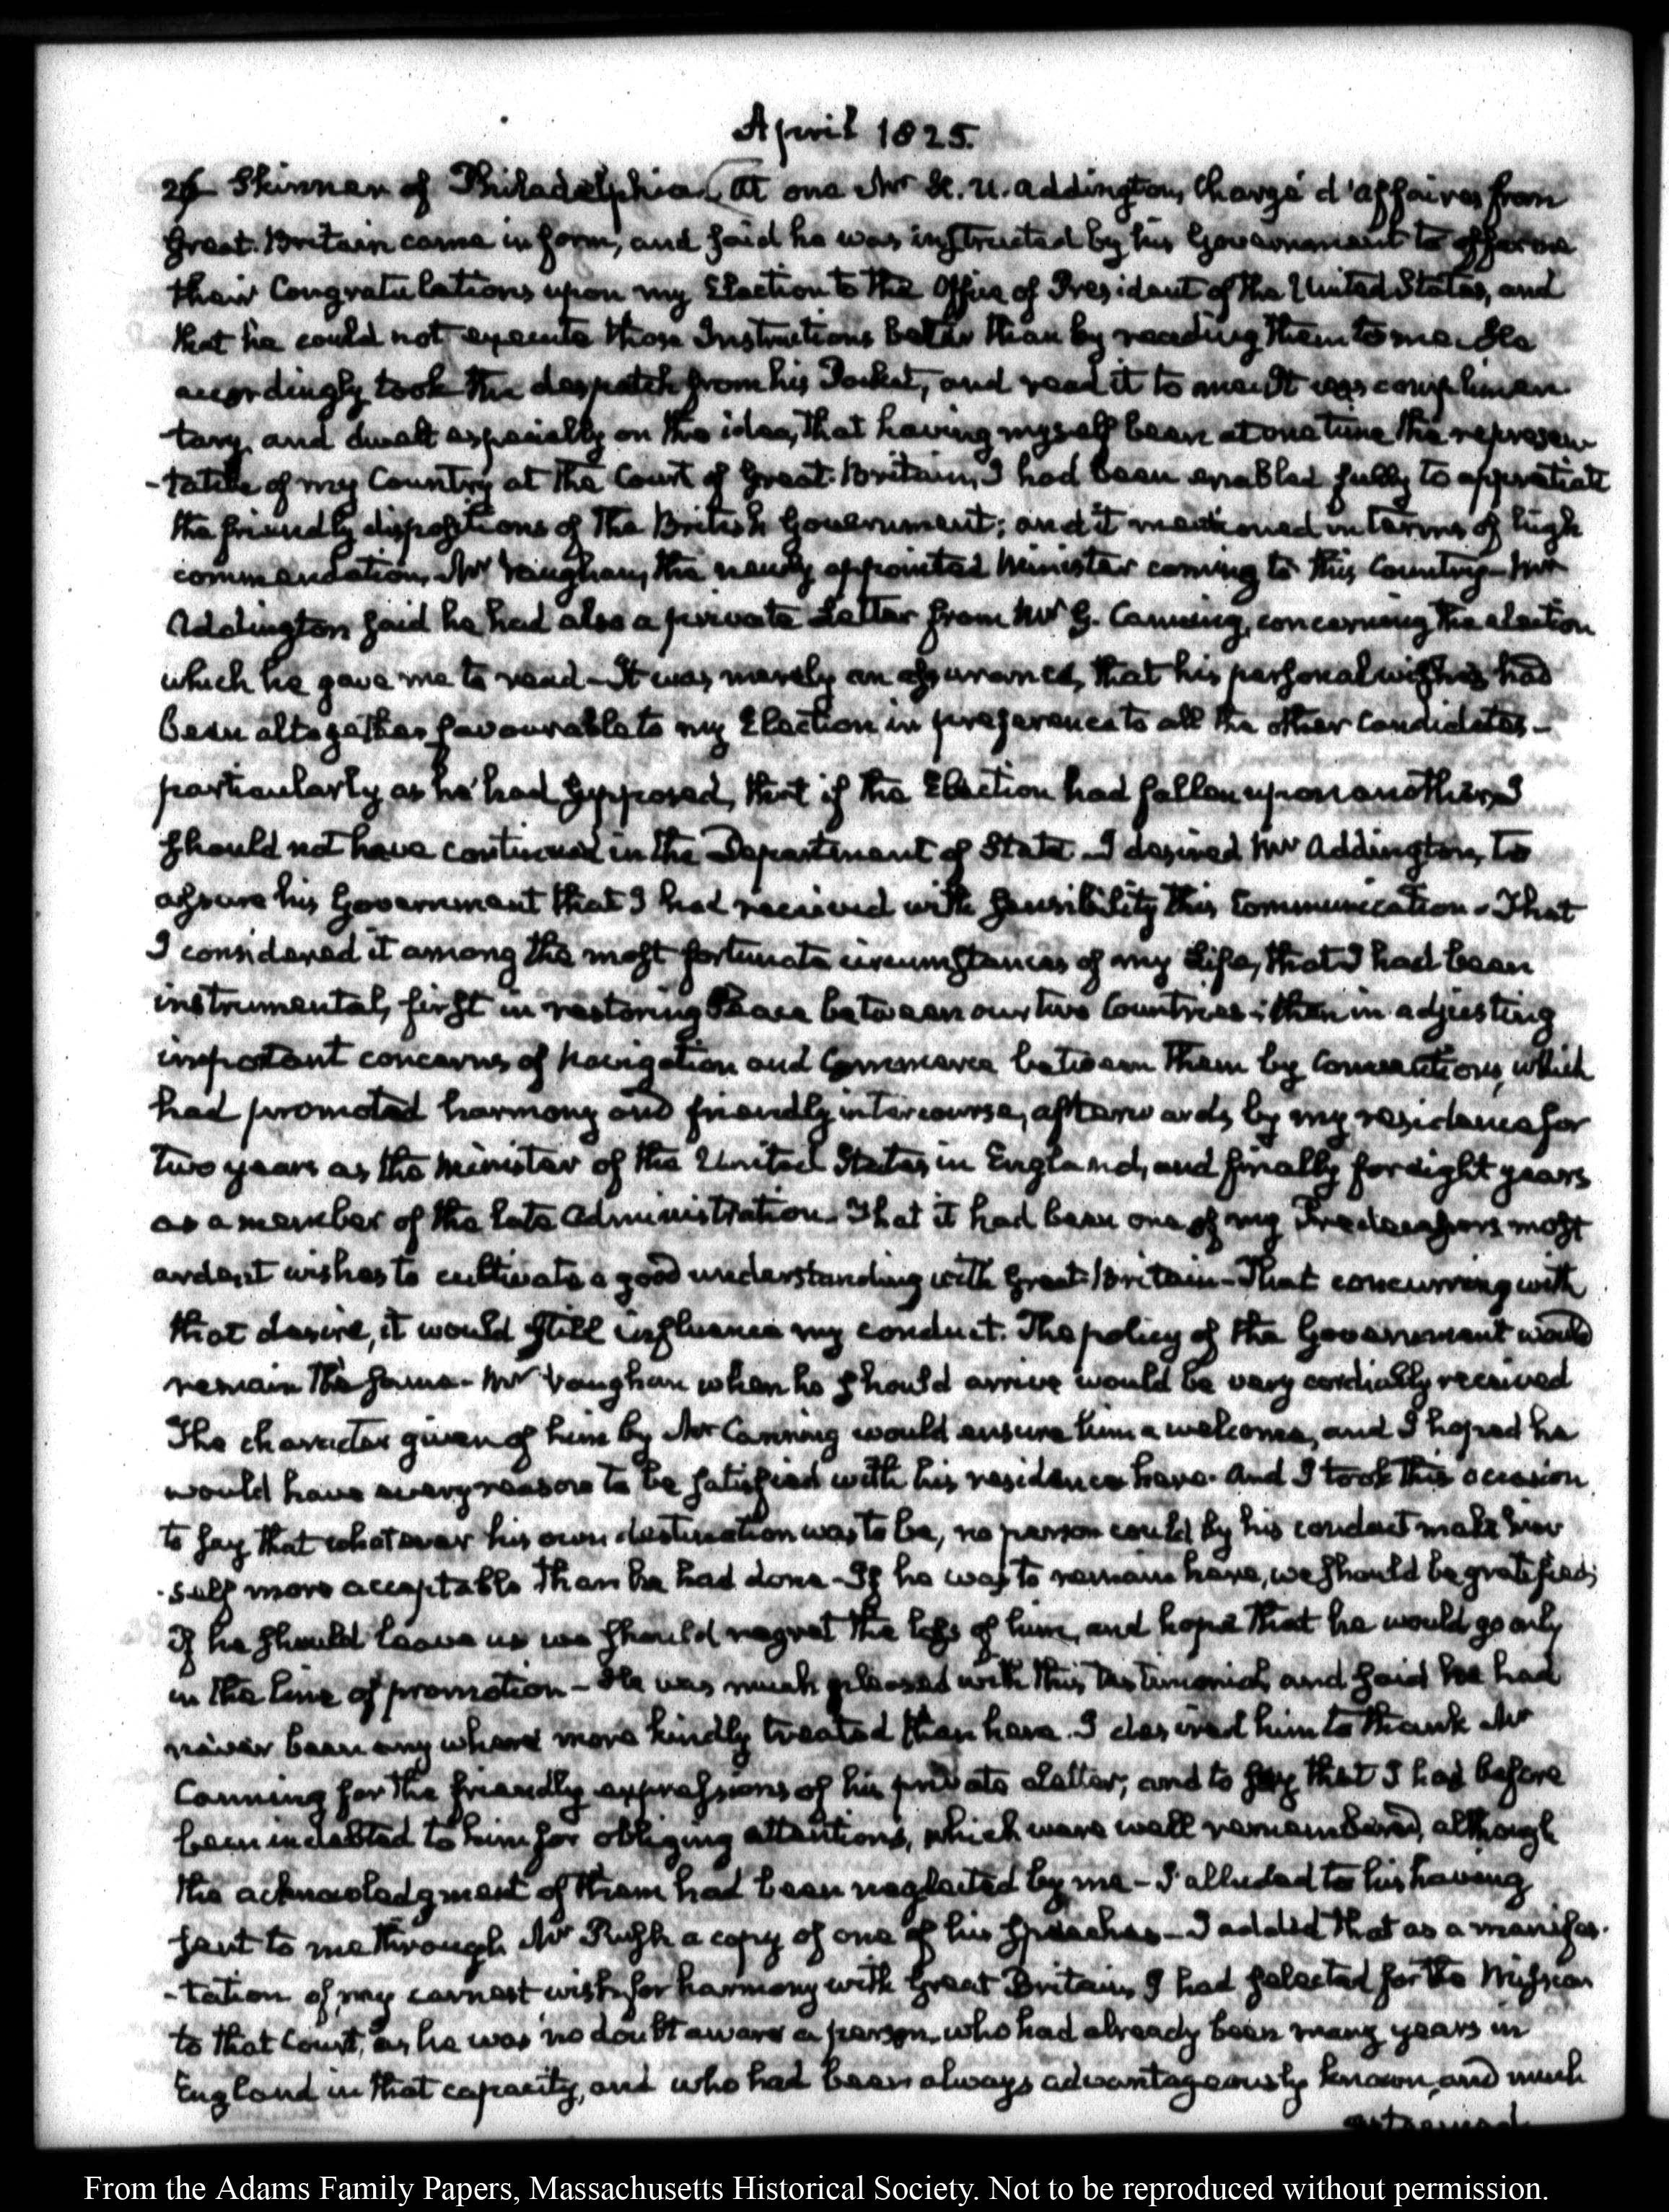 April 1825.
26 Skinner of Philadelphia. At one Mr H. U. Addington, Chargé d'affaires from
Great-Britain came in form, and said he was instructed by his Government to offer me
their Congratulations upon my Election to the Office of President of the United States, and
that he could not execute those Instructions better than by reading them to me. He
accordingly took the despatch from his Pocket, and read it to me. It was complimen-
tary, and dwelt especially on the idea, that having myself been at one time the represen-
-tative of my Country at the Court of Great-Britain, I had been enabled fully to appretiate
the friendly dispositions of the British Government; and it mentioned in terms of high
commendation, Mr Vaughan, the newly appointed Minister coming to this Country—Mr
Addington said he had also a private Letter from Mr G. Canning, concerning the election
which he gave me to read—It was merely an assurance, that his personal wishes had
been altogether favourable to my Election in preference to all the other Candidates—
particularly as he had supposed, that if the Election had fallen upon another, I
should not have continued in the Department of State. I desired Mr Addington, to
assure his Government that I had received with sensibility this Communication. That
I considered it among the most fortunate circumstances of my Life, that I had been
instrumental, first in restoring Peace between our two Countries; then in adjusting
important concerns of Navigation and Commerce between them by Conventions, which
had promoted harmony and friendly intercourse, afterwards, by my residence for
two years as the Minister of the United States in England, and finally for eight years
as a member of the late Administration. That it had been one of my Predecessors most
ardent wishes to cultivate a good understanding with Great-Britain—That concurring with
that desire, it would still influence my conduct. The policy of the Government would
remain the same—Mr Vaughan when he should arrive would be very cordially received
The character given of him by Mr Canning would ensure him a welcome, and I hoped he
would have every reason to be satisfied with his residence here. And I took this occasion
to say that whatever his own destination was to be, no person could by his conduct make him
-self more acceptable than he had done—If he was to remain here, we should be gratified;
if he should leave us we should regret the loss of him, and hope that he would go only
in the line of promotion—He was much pleased with this testimonial, and said he had
never been any where more kindly treated than here. I desired him to thank Mr
Canning for the friendly expressions of his private Letter; and to say that I had before
been indebted to him for obliging attentions, which were well remembered, although
the acknowledgment of them had been neglected by me—I alluded to his having
sent to me through Mr Rush a copy of one of his Speeches—I added that as a manifes-
-tation of my earnest wish for harmony with Great Britain, I had selected for the Mission
to that Court, as he was no doubt aware a person, who had already been many years in
England in that capacity, and who had been always advantageously known, and much
esteemed
From the Adams Family Papers, Massachusetts Historical Society. Not to be reproduced without permission.